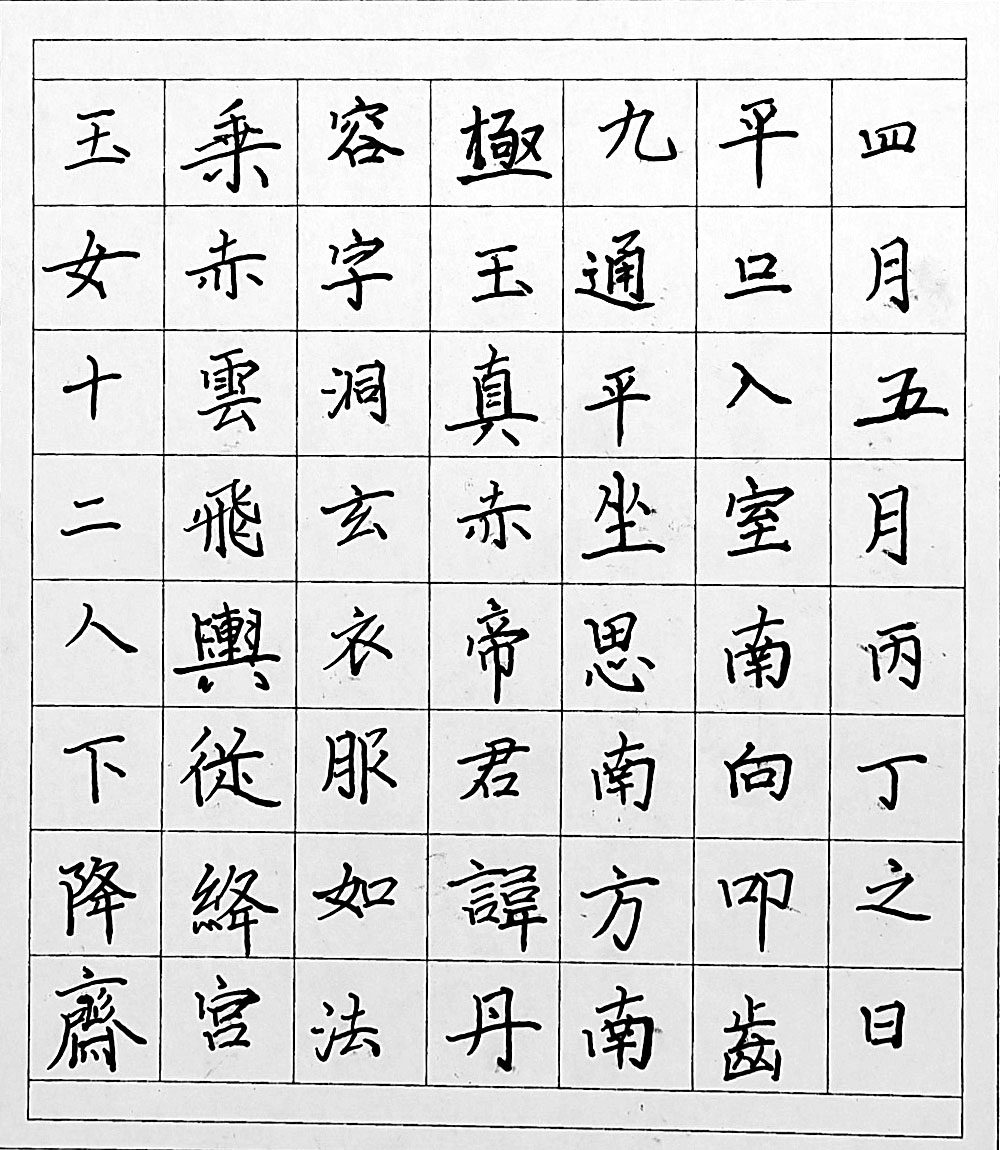 四月五月丙丁之日
平旦入室南向叩齒
九通平坐思南方南
極玉真赤帝君諱丹
容字洞玄衣服如法
乗赤雲飛輿從絳宮
玉女十二人下降齋